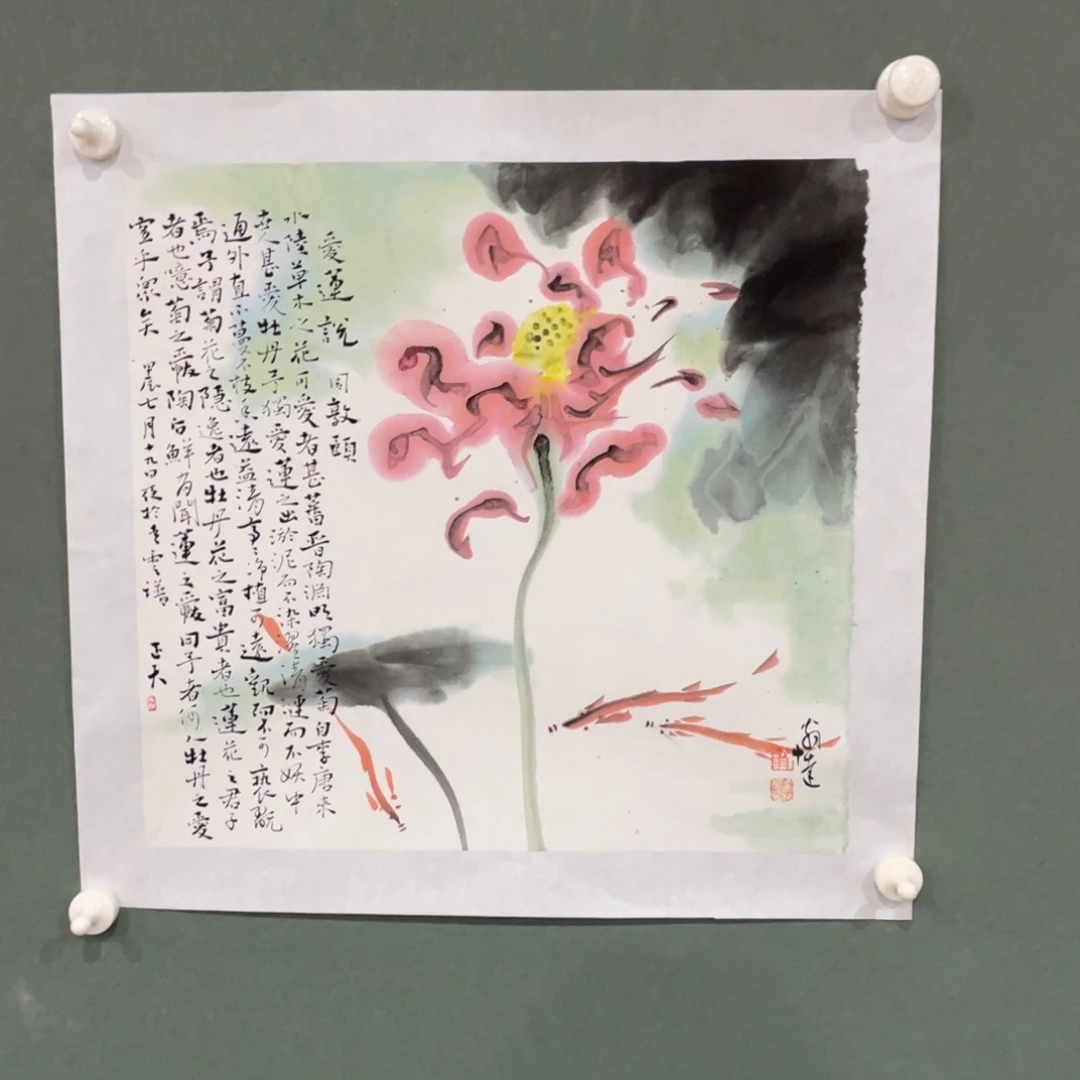 愛蓮說 周敦頤
水陸草木之花可愛者甚蕃晉陶淵明獨愛菊自李唐来
甚愛牡丹予獨愛蓮之出淤泥而不染濯清漣而不妖中
通外直不蔓不枝香遠益清亭〻净植可遠觀而不可褻翫
焉予謂菊花之隱逸者也牡丹花之富貴者也蓮花之君子
者也噫菊之愛陶后鮮有聞蓮之愛同予者何人牡丹之愛
宜乎眾矣 七月十九日夜於青雲譜 正天